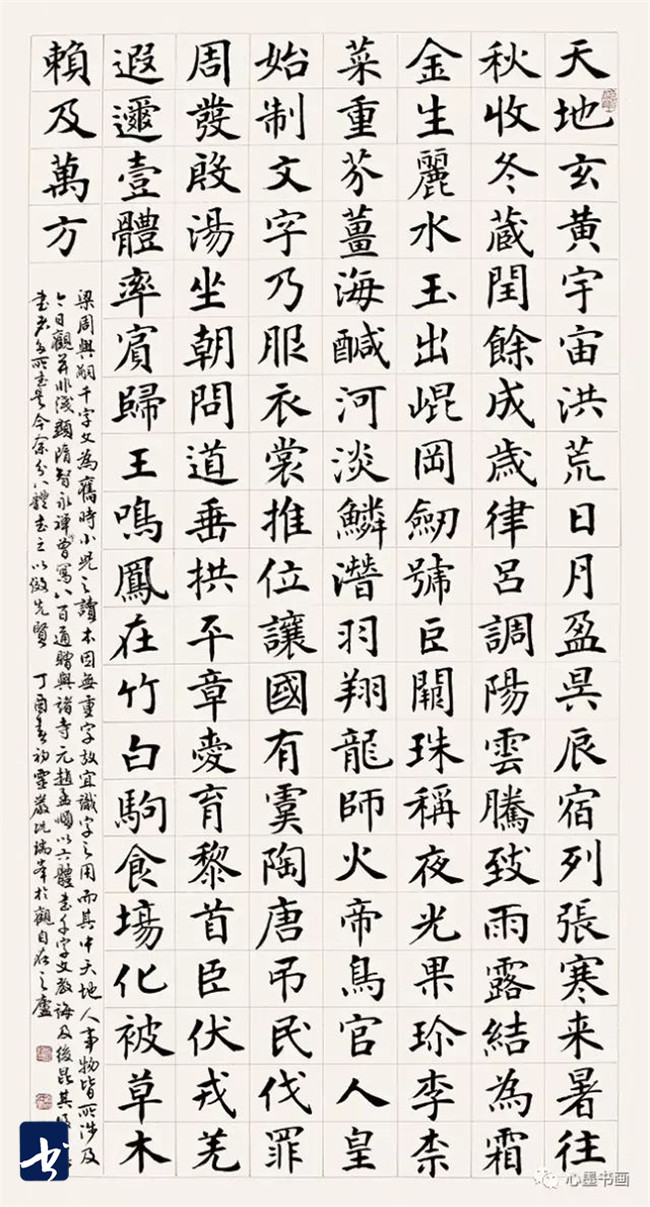 天地玄黄宇宙洪荒日月盈昃辰宿列張寒来暑往
秋收冬蔵閏餘成歳律呂調陽雲騰致雨露結為霜
金生麗水玉出崐岡劒號巨闕珠稱夜光果珎李柰
菜重芥薑海鹹河淡鱗潛羽翔龍師火帝鳥官人皇
始制文字乃服衣裳推位讓國有虞陶唐吊民伐罪
周發殷湯坐朝問道垂拱平章愛育黎首臣伏戎羌
遐邇壹體率賓歸王鳴鳳在竹白駒食場化被草木
賴及萬方
梁周興嗣千字文為舊時小児之讀本因無重字故宜識字之用而其中天地人事物皆所涉及
今日觀并非淺顯隋智永禪曾寫八百通贈與諸寺元趙孟頫以六體書千字文教誨及後昆其後
書者多所書是今余分八體書之以傚先賢 丁酉春初靈巖沈瑞峯於觀自在之廬
书
心墨书画